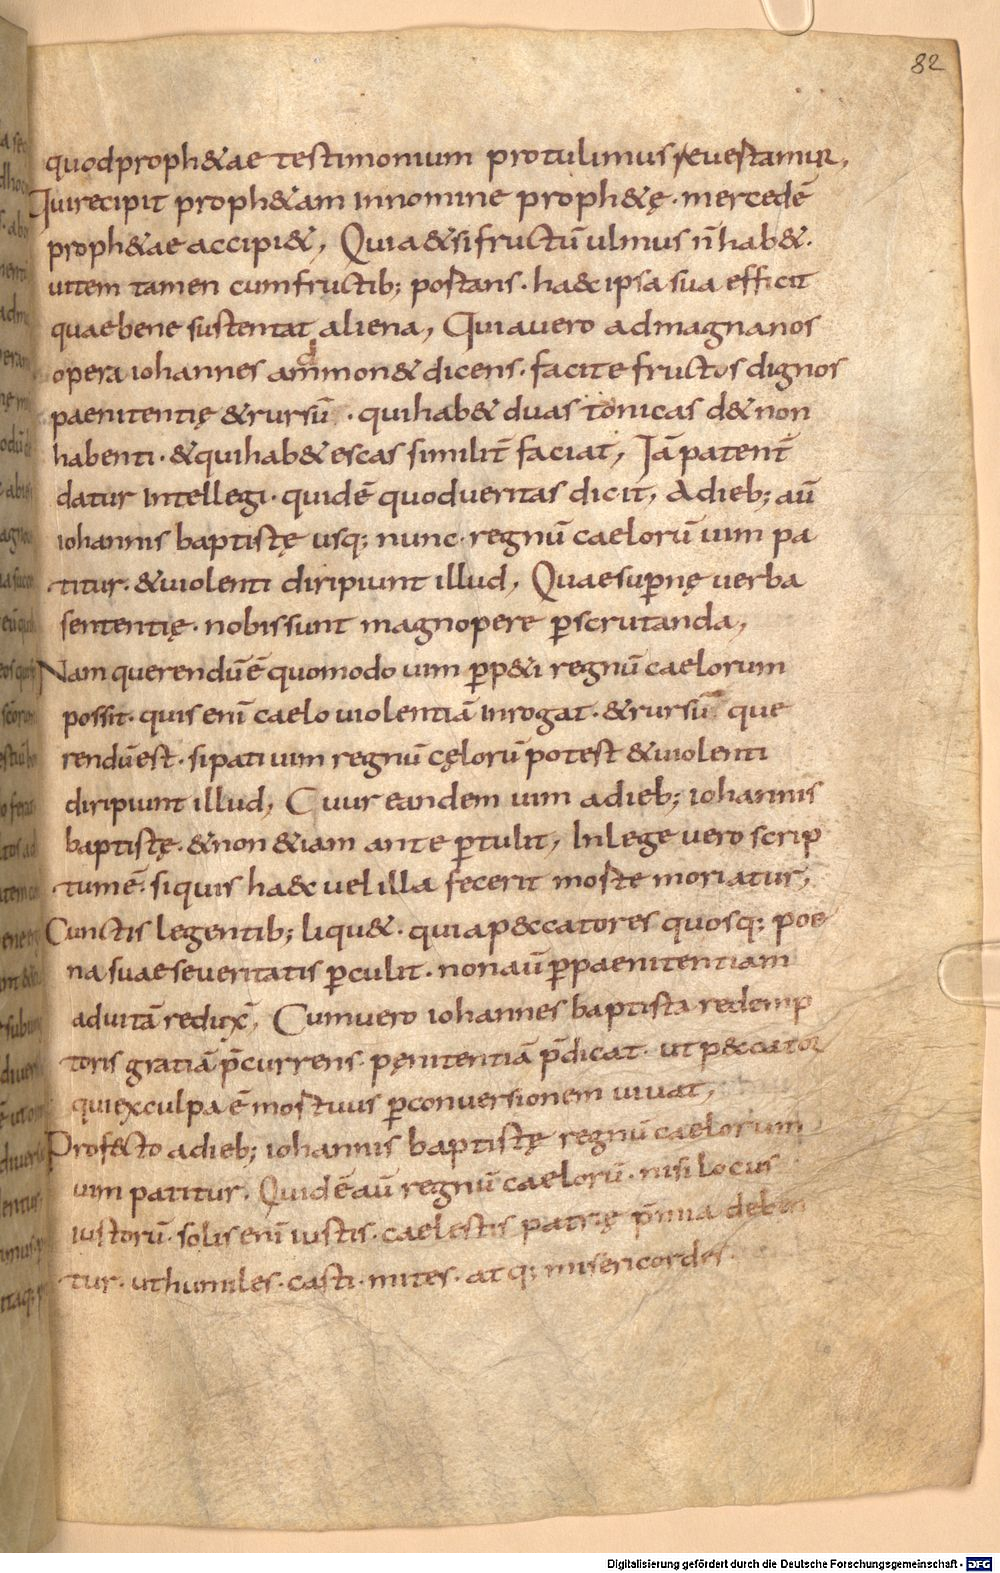 82
quodproph&ae testimonium protulimus revestamur,
Qui recipit proph&am innomine proph&ę · mercedē
proph&ae accipi&, Quia & si fructū ulmus n̄ hab& ·
uitem tamen cum fructib; postans · haec ipsa sua efficit
quae bene sustentat aliena, Quia uero admagnanos
opera iohannes ammon& dicens · facite fructos dignos
paenitentię & rursū · qui hab& duas tonicas d& non
habenti · & qui hab& escas similit̄ faciat, Iā patent̄
datur intellegi · quidē quod ueritas dicit, Adieb; aū
iohannis baptistę usq; nunc · regnū caelorū uim pa
titur · & uiolenti diripiunt illud, Quae sup̄nę uerba
sententię · nobis sunt magnopere p̄scrutanda,
Nam querendū ē quomodo uim p̄p&i regnū caelorum
possit · quis enī caelo uiolentiā inrogat · & rursū que
rendū est · si pati uim regnū cęlorū potest & uiolenti
diripiunt illud, Cuur eandem uim adieb; iohannis
baptistę · & non &iam ante p̄tulit, In lege uero scrip
tum ē · si quis haec uel illa fecerit morte moriatur,
Cunctis legentib; liqu& · quia peccatores quosq; poe
na suae seueritatis p̄culit · non aū p̄ paenitentiam
ad uitā redux̄, Cum uero iohannes baptista redemp
toris gratiā p̄currens · pęnitentiā p̄dicat · ut peccator
qui ex culpa ē mortuus p̄ conuersionem uiuat,
Prof&cto adieb; iohannis baptistę regnū caelorum
uim patitur · Quid ē aū regnū caelorū · nisi locus
iustorū · solis enī iustis · caelestis patrię p̄mia deben
tur · ut humiles · casti · mites · atq; misericordes ·
Digitalisierung gefördert durch die Deutsche Forschungsgemeinschaft - DFG